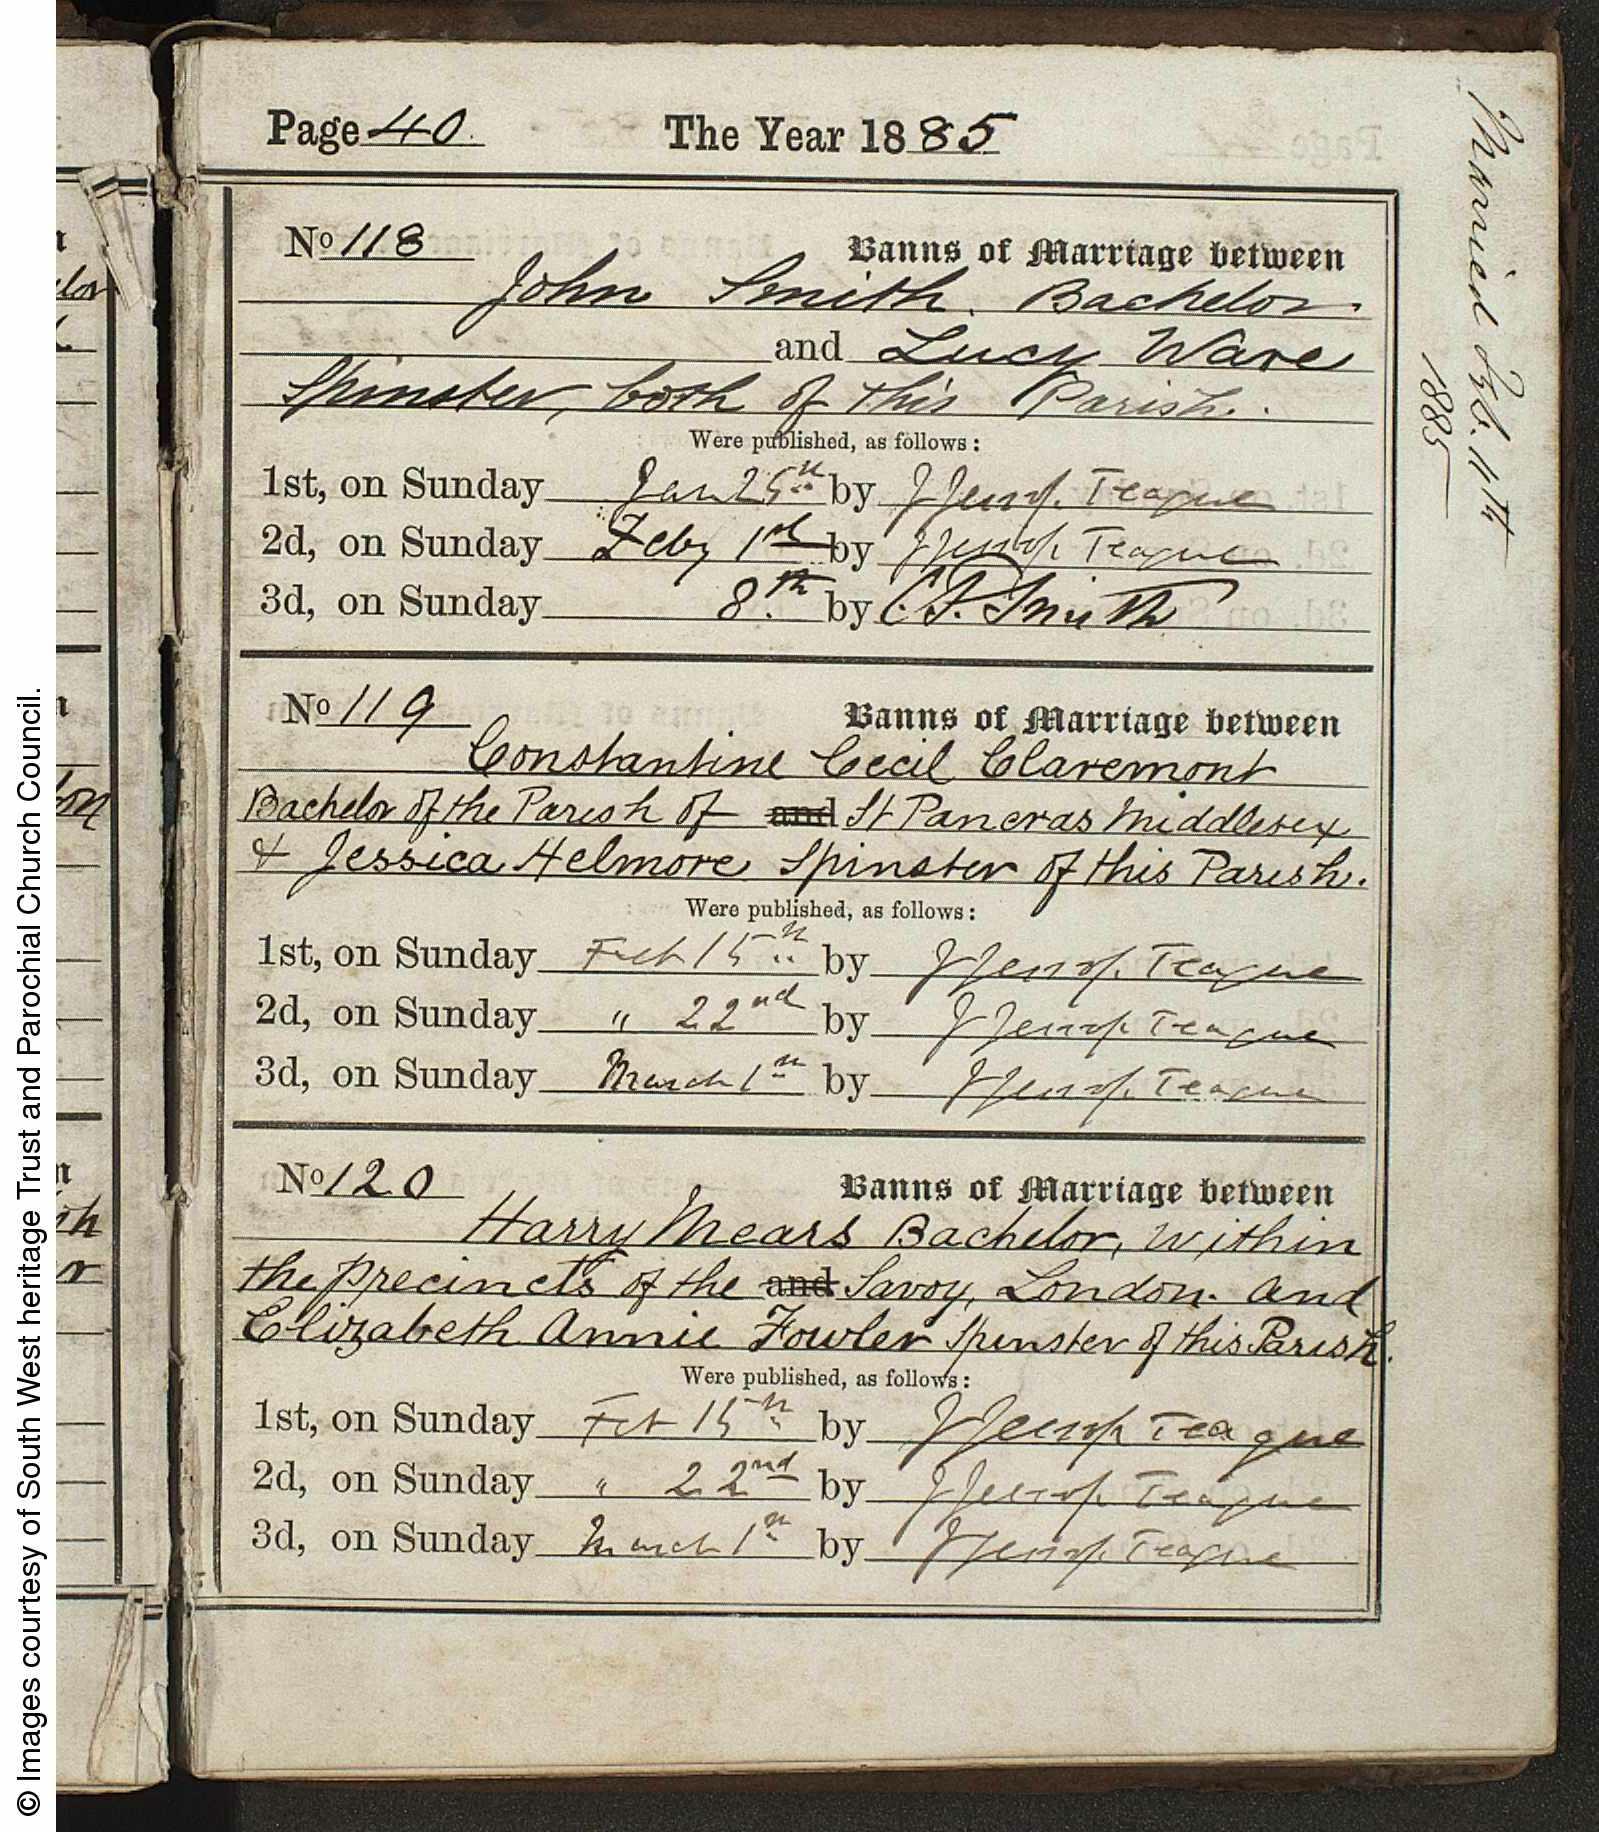 Page 40 The Year 1885
No 118 Banns of Marriage between
John Smith. Bachelor.
and Lucy Ware
Spinster, both of this Parish.
Were published, as follows:
1st, on Sunday Jan 25th by J Jessop. Teague
2d, on Sunday Feby 1st by J Jessop. Teague
3d, on Sunday 8th by C.F. Smith
No 119 Banns of Marriage between
Constantine Cecil Claremont
Bachelor of the Parish of and St Pancras Middlesex
& Jessica Helmore Spinster of this Parish.
Were published, as follows:
1st, on Sunday Feb 15th by J Jessop. Teague
2d, on Sunday " 22nd by J Jessop. Teague
3d, on Sunday March 1st by J Jessop. Teague
No 120 Banns of Marriage between
Harry Mears Bachelor, within
the precincts of the and Savoy, London. and
Elizabeth Annie Fowler Spinster of this Parish.
Were published, as follows:
1st, on Sunday Feb 15th by J Jessop Teague
2d, on Sunday " 22nd by J Jessop. Teague
3d, on Sunday March 1st by J Jessop. Teague
Married Feb. 11th
1885
© Images courtesy of South West heritage Trust and Parochial Church Council.